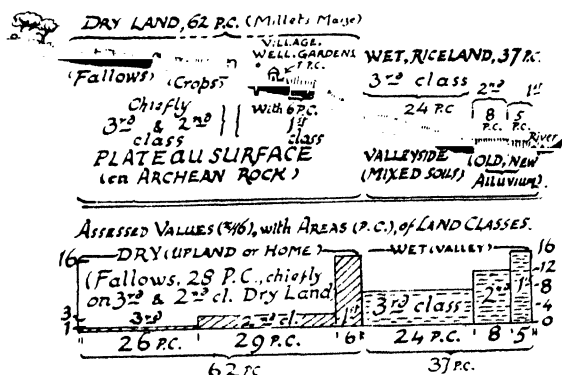 DRY LAND, 62 P.C. (Millets Maize)
VILLAGE,
WELL, GARDENS
1 P.C.
WET, RICELAND, 37 P.C.
(Fallows) (Crops)
3rd class 2nd 1st
Chiefly
3rd & 2nd
class
With 6 P.C.
1st
class
24 P.C 8 P.C. 5 P.C.
River
PLATEAU SURFACE
(on ARCHEAN ROCK)
VALLEYSIDE
(MIXED SOILS)
(OLD, NEW
Alluvium).
ASSESSED VALUES, with AREAS (P.C.), of LAND CLASSES.
16 DRY (UPLAND or HOME) WET (VALLEY) 16
(Fallows, 28 P.C., chiefly
on 3rd & 2nd cl. Dry Land
12
8
4
0
3
1
3rd 2nd cl. 1st 3rd class 2nd 1st
26 P.C. 29 P.C. 6 24 P.C. 8 5
62 P.C 37 P.C.